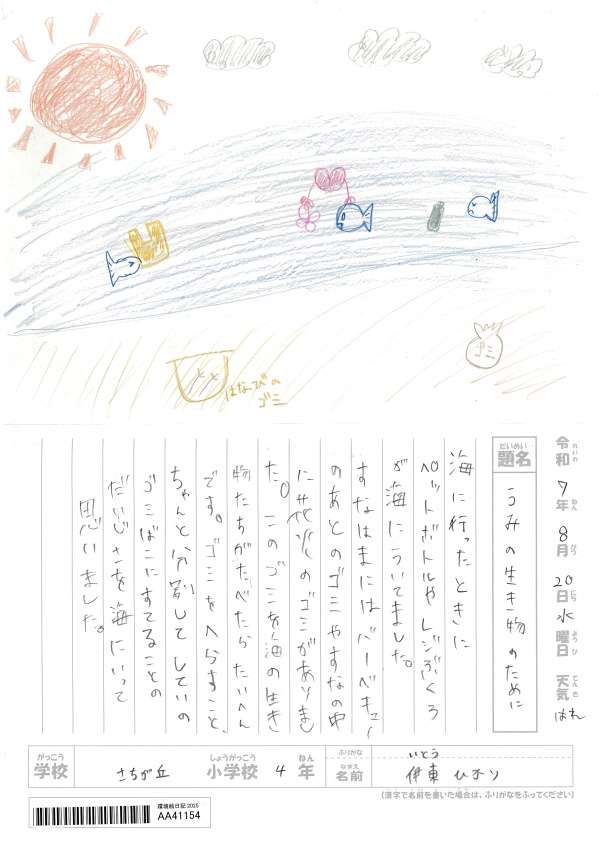 ゴミ
はなびの
ゴミ
令和7年8月20日水曜日 天気 はれ
れいわ ねん がつ にち ようび てんき
だいめい
題名 うみの生き物のために
海に行ったときに
ペットボトルやレジぶくろ
が海にういてました。
すなはまにはバーベキュー
のあとのゴミやすなの中
に花火のゴミがありまし
た。このゴミを海の生き
物たちがたべたらたいへん
です。ゴミをへらすこと、
ちゃんと分別してしていの
ゴミばこにすてることの
だいじさを海にいって
思いました。
がっこう しょうがっこう ねん ふりがな いとう
学校 さちが丘 小学校 4年 なまえ 名前 伊東
(漢字で名前を書いた場合は、ふりがなをふってください)
環境絵日記2025
AA41154